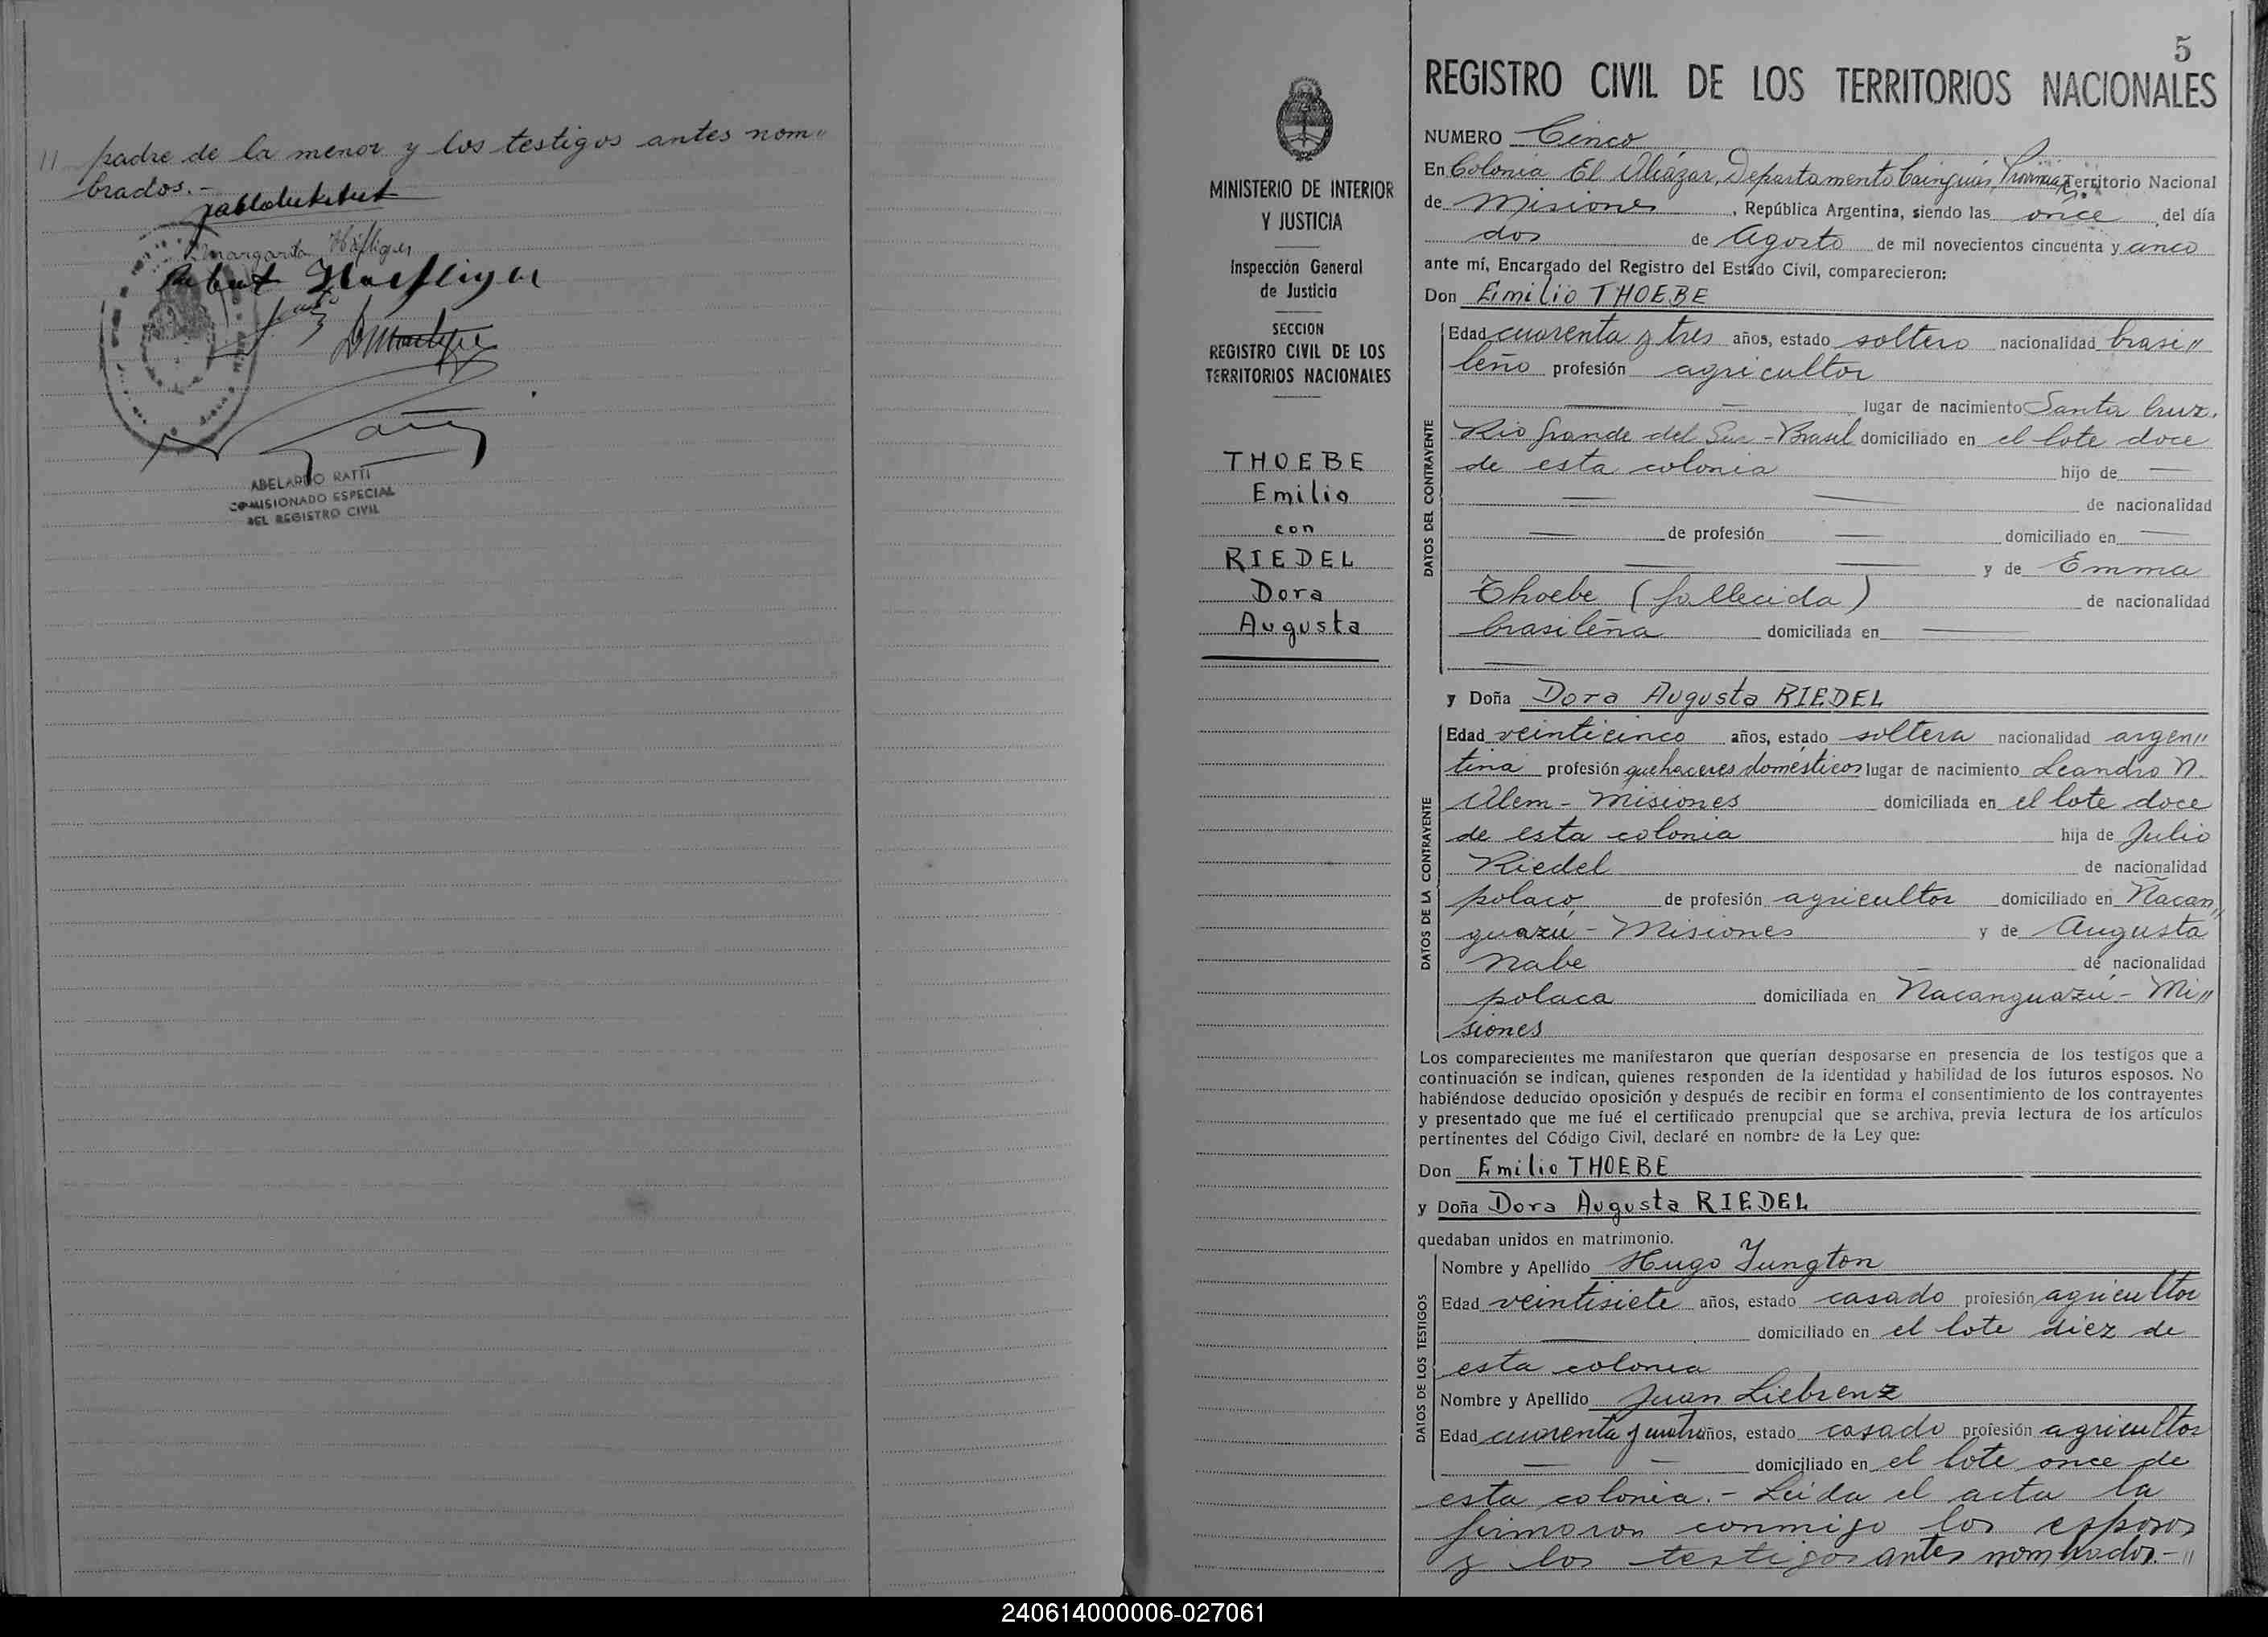 // padre de la menor y los testigos antes nom"
brados.-
Margarita Häfliger
Robert Haefliger
ABELARDO RATTI
COMISIONADO ESPECIAL
DEL REGISTRO CIVIL
5
MINISTERIO DE INTERIOR
Y JUSTICIA
Inspección General
de Justicia
SECCION
REGISTRO CIVIL DE LOS
TERRITORIOS NACIONALES
THOEBE
Emilio
con
RIEDEL
Dora
Augusta
REGISTRO CIVIL DE LOS TERRITORIOS NACIONALES
NUMERO Cinco
En Colonia El Alcázar, Departamento Cainguás, Provincia Territorio Nacional
de Misiones, República Argentina, siendo las once del día
dos de Agosto de mil novecientos cincuenta y cinco
ante mí, Encargado del Registro del Estado Civil, comparecieron:
Don Emilio THOEBE
DATOS DEL CONTRAYENTE
Edad cuarenta y tres años, estado soltero nacionalidad brasi"
leño profesión agricultor
lugar de nacimiento Santa Cruz.
Rio Grande del Sur - Brasil domiciliado en el lote doce
de esta colonia hijo de —
— — de nacionalidad
— de profesión — domiciliado en —
— — y de Emma
Thoebe (fallecida) de nacionalidad
brasileña domiciliada en —
—
y Doña Dora Augusta RIEDEL
DATOS DE LA CONTRAYENTE
Edad veinticinco años, estado soltera nacionalidad argen"
tina profesión quehaceres domésticos lugar de nacimiento Leandro N.
Alem - Misiones domiciliada en el lote doce
de esta colonia hija de Julio
Riedel de nacionalidad
polaco, de profesión agricultor domiciliado en Ñacan"
guazú - Misiones y de Augusta
Nabe de nacionalidad
polaca domiciliada en Ñacanguazú - Mi"
siones
Los comparecientes me manifestaron que querían desposarse en presencia de los testigos que a
continuación se indican, quienes responden de la identidad y habilidad de los futuros esposos. No
habiéndose deducido oposición y después de recibir en forma el consentimiento de los contrayentes
y presentado que me fué el certificado prenupcial que se archiva, previa lectura de los artículos
pertinentes del Código Civil, declaré en nombre de la Ley que:
Don Emilio THOEBE
y Doña Dora Augusta RIEDEL
quedaban unidos en matrimonio.
DATOS DE LOS TESTIGOS
Nombre y Apellido Hugo Jungton
Edad veintisiete años, estado casado profesión agricultor
— domiciliado en el lote diez de
esta colonia
Nombre y Apellido Juan Liebrenz
Edad cuarenta y cuatro años, estado casado profesión agricultor
— — domiciliado en el lote once de
esta colonia.- Leída el acta la
firmaron conmigo los esposos
y los testigos antes nombrados.-"
240614000006-027061